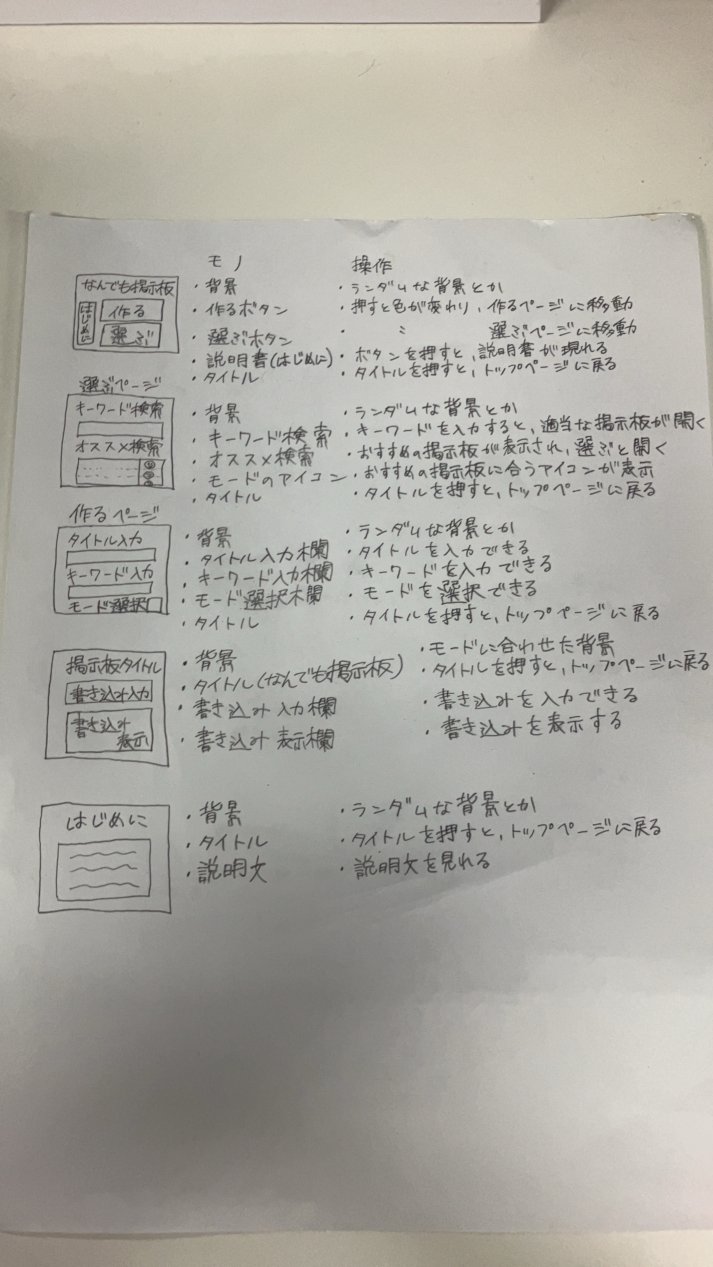 モノ 操作
なんでも掲示板
はじめに
作る
選ぶ
・背景 ・ランダムな背景とか
・作るボタン ・押すと色が変わり、作るページに移動
・選ぶボタン ・ 〃 選ぶページに移動
・説明書(はじめに) ・ボタンを押すと、説明書が現れる
・タイトル ・タイトルを押すと、トップページに戻る
選ぶページ
キーワード検索
オススメ検索
・背景 ・ランダムな背景とか
・キーワード検索 ・キーワードを入力すると、適当な掲示板が開く
・オススメ検索 ・おすすめの掲示板が表示され、選ぶと開く
・モードのアイコン ・おすすめの掲示板に合うアイコンが表示
・タイトル ・タイトルを押すと、トップページに戻る
作るページ
タイトル入力
キーワード入力
モード選択
・背景 ・ランダムな背景とか
・タイトル入力欄 ・タイトルを入力できる
・キーワード入力欄 ・キーワードを入力できる
・モード選択欄 ・モードを選択できる
・タイトル ・タイトルを押すと、トップページに戻る
掲示板タイトル
書き込み入力
書き込み
表示
・背景 ・モードに合わせた背景
・タイトル(なんでも掲示板) ・タイトルを押すと、トップページに戻る
・書き込み入力欄 ・書き込みを入力できる
・書き込み表示欄 ・書き込みを表示する
はじめに
・背景 ・ランダムな背景とか
・タイトル ・タイトルを押すと、トップページに戻る
・説明文 ・説明文を見れる